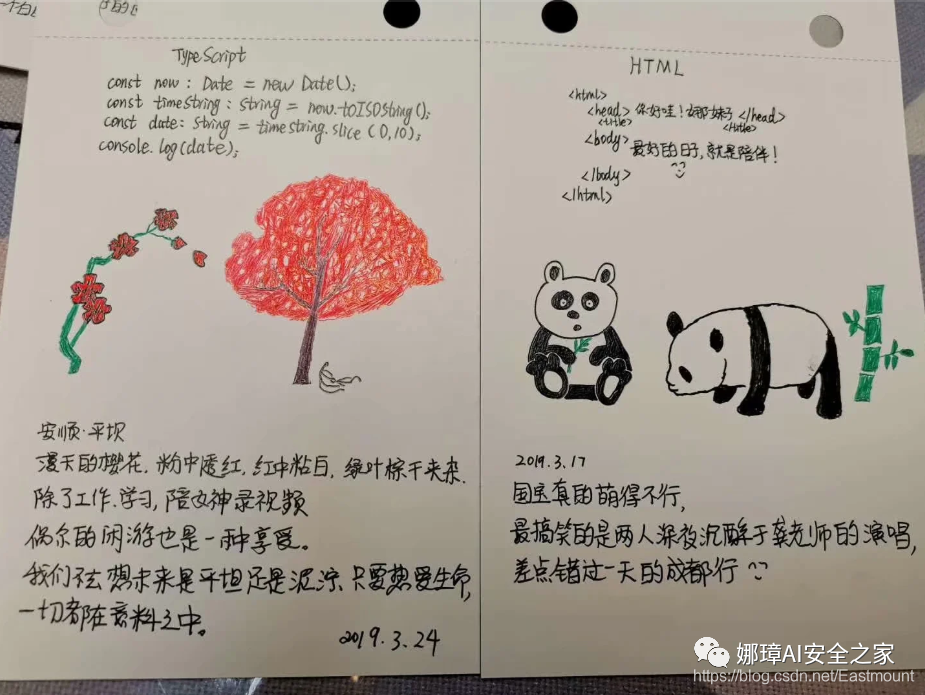 TypeScript
const now : Date = new Date();
const timeString : string = now.toISOString();
const date: string = timestring.slice (0,10);
console.log(date);
安顺·平坝
漫天的樱花,粉中透红,红中粘白,绿叶棕干夹杂.
除了工作、学习,陪女神录视频
偶尔的闲游也是一种享受。
我们不去想未来是平坦还是泥泞,只要热爱生命,
一切都在意料之中。
2019.3.24
HTML
<html>
<head> 你好哇!娜妹子 </head>
<title> </title>
<body> 最好的日子,就是陪伴!
</body>
</html>
2019.3.17
国宝真的萌得不行,
最搞笑的是两人深夜沉醉于龚老师的演唱,
差点错过一天的成都行
娜璋AI安全之家
https://blog.csdn.net/Eastmount